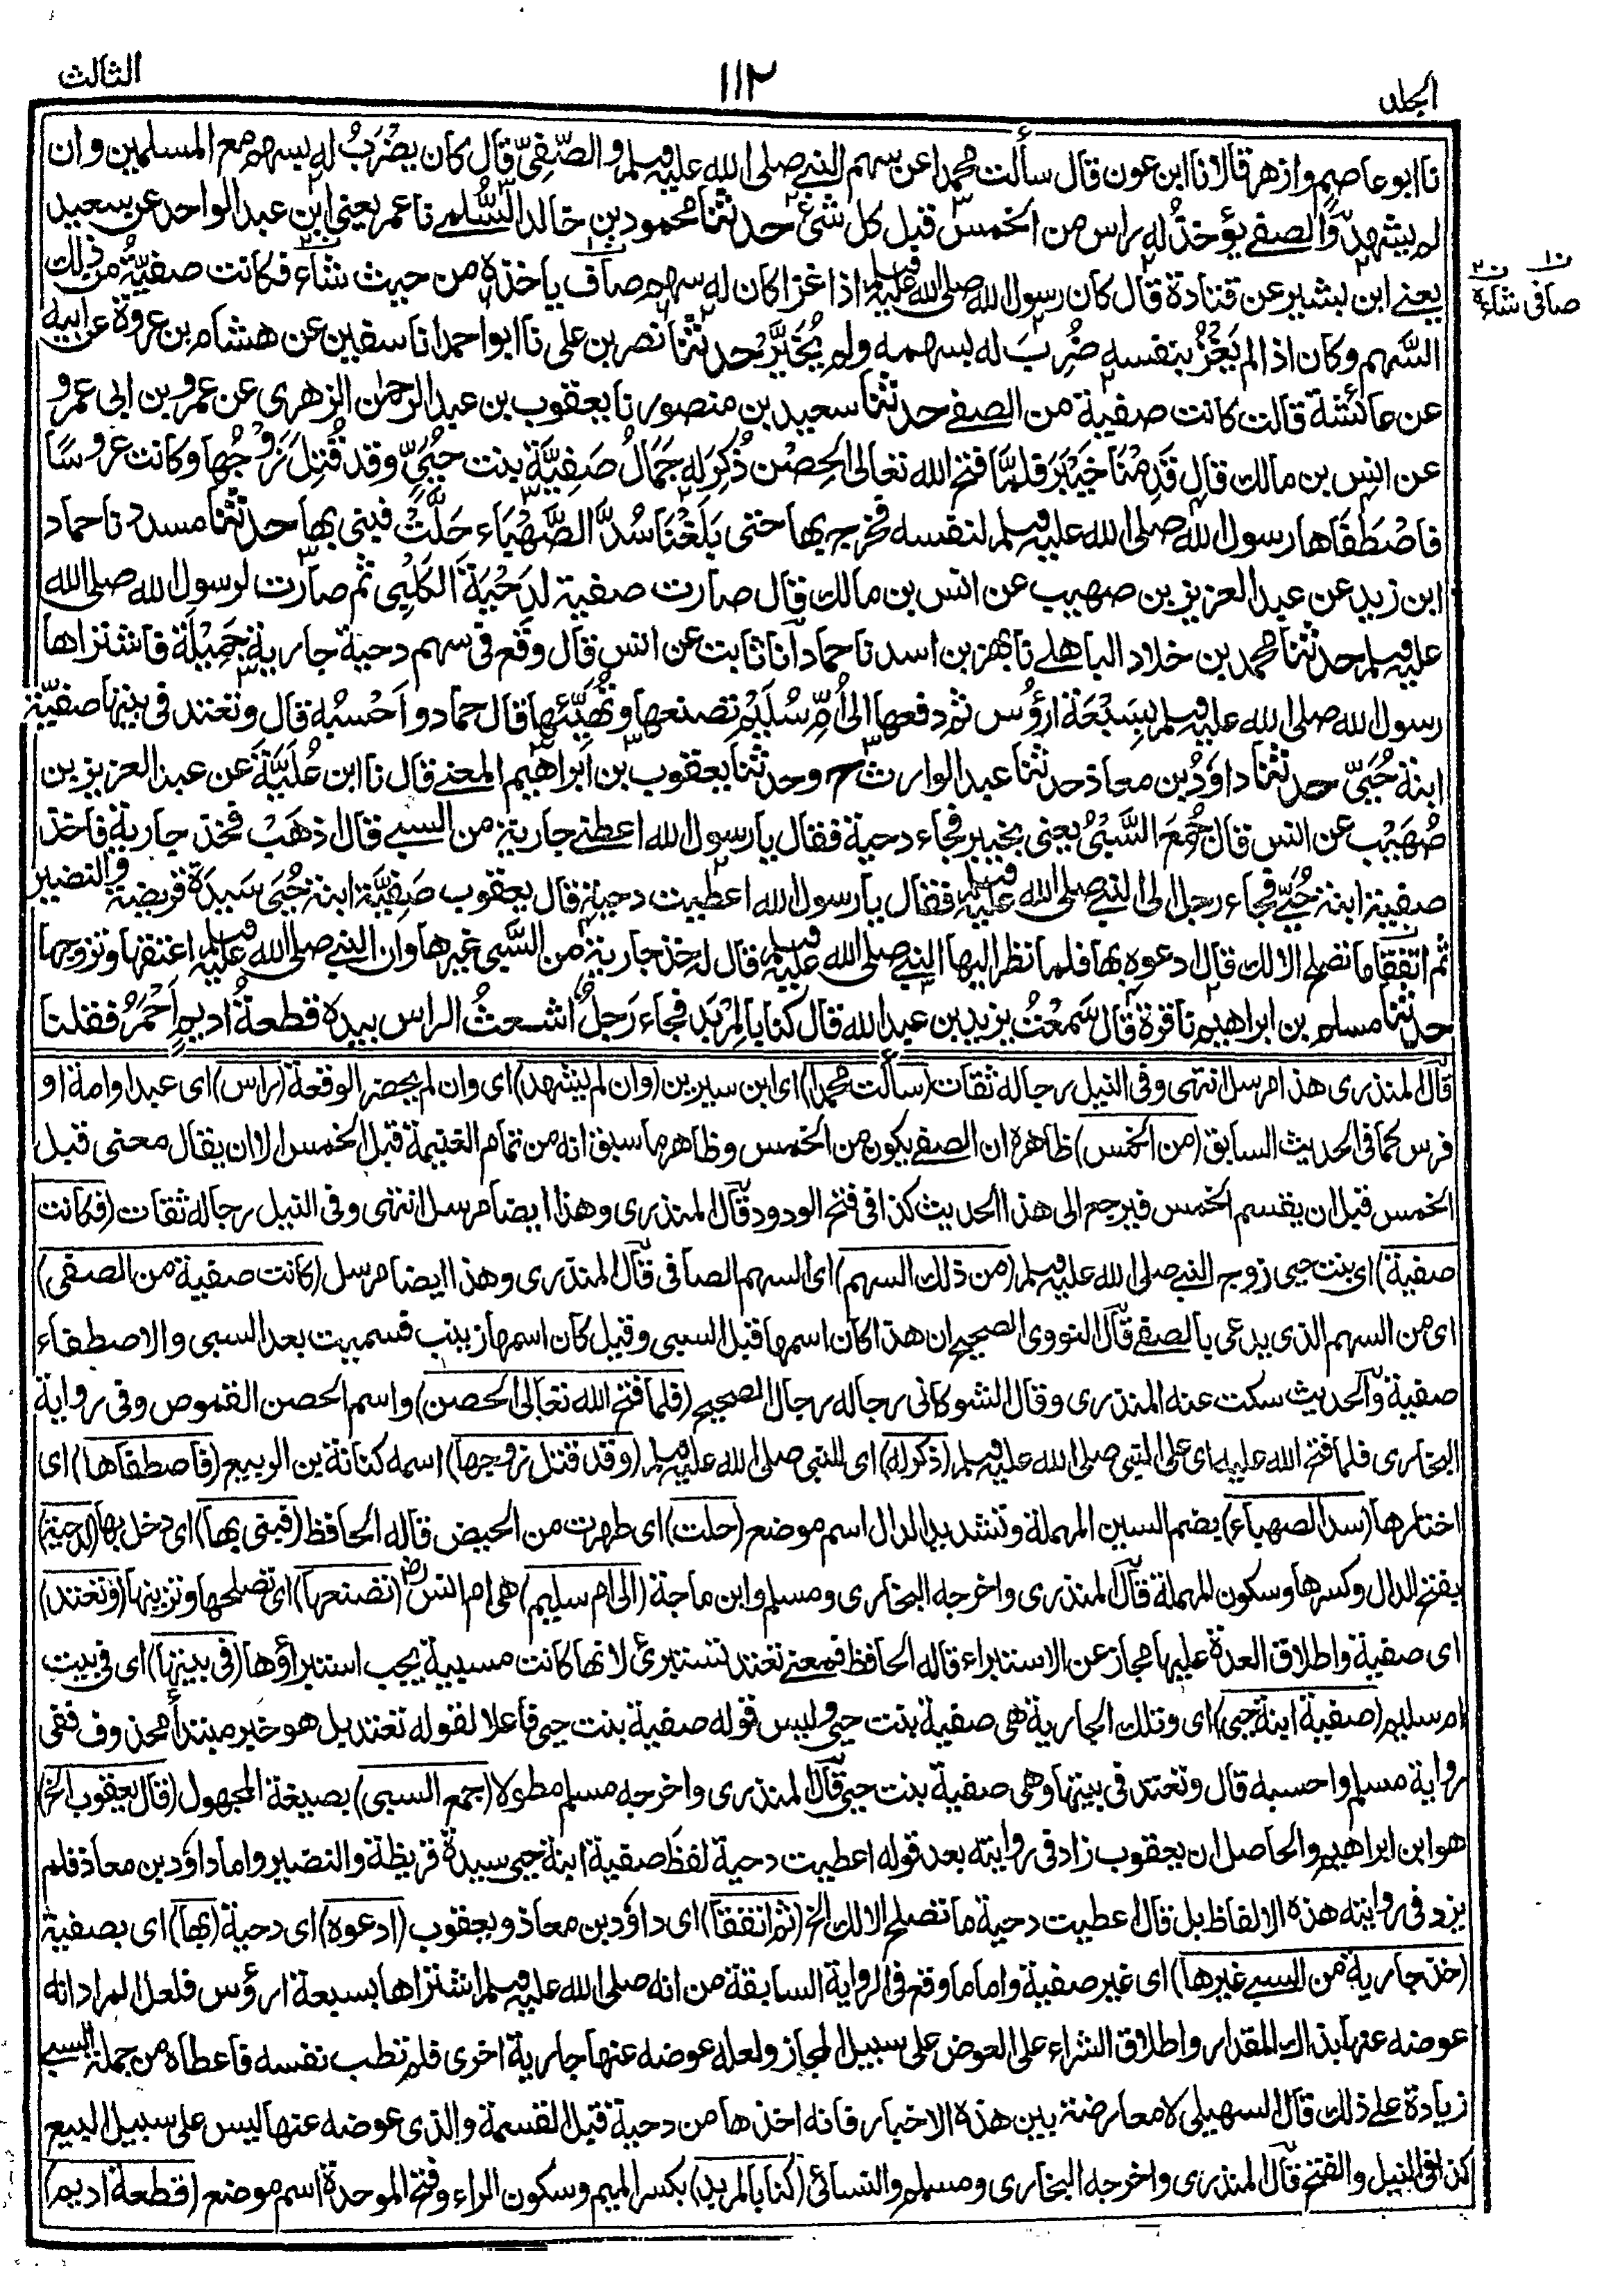 الجلد ١١٢ الثالث
نا ابو عاصم وازهر قالا نا ابن عون قال سألت محمدا عن سهم النبي صلى الله عليه وسلم والصَّفِيّ قال كان يُضْرَبُ له بسهم مع المسلمين وان
لم يشهد والصفي يؤخذُ له راس من الخمس قبل كل شئ حدثنا محمود بن خالد السُّلمي نا عمر يعني ابن عبد الواحد عن سعيد
يعنى ابن بشير عن قتادة قال كان رسول الله صلى الله عليه وسلم اذا غزا كان له سهم صاف ياخذه من حيث شاء فكانت صفيّةُ من ذلك
صافى شاءه
السَّهم وكان اذا لم يَغْزُ بنفسه ضُرِبَ له بسهمه ولم يُخَيَّرْ حدثنا نصر بن على نا ابو احمد انا سفين عن هشام بن عروة عن ابيه
عن عائشة قالت كانت صفية من الصفى حدثنا سعيد بن منصور نا يعقوب بن عبد الرحمن الزهرى عن عمرو بن ابى عمرو
عن انس بن مالك قال قَدِمْنَا خَيْبَرَ فلمَّا فتح الله تعالى الحِصْن ذُكِرَ له جَمَالُ صَفِيَّةَ بنت حُيَيٍّ وقد قُتِلَ زَوْجُها وكانت عروسًا
فاصْطَفَاها رسول الله صلى الله عليه وسلم لنفسه فخرج بها حتى بَلَغْنَا سُدَّ الصَّهْبَاء حَلَّتْ فبنى بها حدثنا مسدد نا حماد
ابن زيد عن عبد العزيز بن صهيب عن انس بن مالك قال صارت صفية لدِحْيَةَ الكَلْبِى ثم صارت لرسول الله صلى الله
عليه وسلم حدثنا محمد بن خلاد الباهلى نا بهز بن اسد نا حماد انا ثابت عن انس قال وقع فى سهم دحية جارية جَمِيْلَة فاشتراها
رسول الله صلى الله عليه وسلم بِسَبْعَة ارؤُس ثم دفعها الى أُمِّ سُلَيْمٍ تصنعها وتُهَيّئها قال حماد واَحْسبُه قال وتعتد فى بيتها صفيّة
ابنة حُيَيّ حدثنا داوُد بن معاذ حدثنا عبد الوارث ح وحدثنا يعقوب بن ابراهيم المعنى قال نا ابن عُلَيَّةَ عن عبد العزيز بن
صُهَيْب عن انس قال جُمِعَ السَّبْىُ يعنى بخيبر فجاء دحية فقال يا رسول الله اعطنى جارية من السبى قال اذهَبْ فخذ جارية فاخذ
صفية ابنة حُيَيّ فجاء رجل الى النبي صلى الله عليه وسلم فقال يا رسول الله اعطيت دحية قال يعقوب صَفِيَّة ابنة حُيَى سَيِّدَة قريضة والنضير
ثم اتفقا ما تصلح الا لك قال ادعوه بها فلما نظر اليها النبي صلى الله عليه وسلم قال له خذ جارية من السَّبى غيرها وان النبي صلى الله عليه وسلم اعتقها وتزوجها
حدثنا مسلم بن ابراهيم نا قرة قال سَمِعْتُ يزيد بن عبد الله قال كنا بالمِرْبَد فجاء رَجلٌ اشعثُ الراس بيده قطعةُ اديم اَحْمَرُ فقلنا
قال المنذرى هذا مرسل انتهى وفى النيل رجاله ثقات (سألت محمدا) اى ابن سيرين (وان لم يشهد) اى وان لم يحضر الوقعة (راس) اى عبد او امة او
فرس كما فى الحديث السابق (من الخمس) ظاهره ان الصفى يكون من الخمس وظاهر ما سبق انه من تمام الغنيمة قبل الخمس الا ان يقال معنى قبل
الخمس قبل ان يقسم الخمس فيرجع الى هذا الحديث كذا فى فتح الودود قال المنذرى وهذا ايضا مرسل انتهى وفى النيل رجاله ثقات (فكانت
صفية) اى بنت حيى زوج النبي صلى الله عليه وسلم (من ذلك السهم) اى السهم الصافى قال المنذرى وهذا ايضا مرسل (كانت صفية من الصفى)
اى من السهم الذى يدعى بالصفى قال النووى الصحيح ان هذا كان اسمها قبل السبى وقيل كان اسمها زينب فسميت بعد السبى والاصطفاء
صفية والحديث سكت عنه المنذرى وقال الشوكانى رجاله رجال الصحيح (فلما فتح الله تعالى الحصن) واسم الحصن القموص وفى رواية
البخارى فلما فتح الله عليه اى على النبي صلى الله عليه وسلم (ذكر له) اى للنبى صلى الله عليه وسلم (وقد قتل زوجها) اسمه كنانة بن الربيع (فاصطفاها) اى
اختارها (سد الصهباء) بضم السين المهملة وتشديد الدال اسم موضع (حلت) اى طهرت من الحيض قاله الحافظ (فبنى بها) اى دخل بها (لدحية)
بفتح الدال وكسرها وسكون المهملة قال المنذرى واخرجه البخارى ومسلم وابن ماجة (الى ام سليم) هى ام انس رض (تصنعها) اى تصلحها وتزينها (وتعتد)
اى صفية واطلاق العدة عليها مجاز عن الاستبراء قاله الحافظ فمعنى تعتد تستبرئ لانها كانت مسبية يجب استبراؤها (فى بيتها) اى فى بيت
ام سليم (صفية ابنة حيى) اى وتلك الجارية هى صفية بنت حيى وليس قوله صفية بنت حيى فاعلا لقوله تعتد بل هو خبر مبتدأ محذوف ففى
رواية مسلم واحسبه قال وتعتد فى بيتها وهى صفية بنت حيى قال المنذرى واخرجه مسلم مطولا (جمع السبى) بصيغة المجهول (قال يعقوب الخ)
هو ابن ابراهيم والحاصل ان يعقوب زاد فى روايته بعد قوله اعطيت دحية لفظ صفية ابنة حيى سيدة قريظة والنضير واما داوُد بن معاذ فلم
يزد فى روايته هذه الالفاظ بل قال اعطيت دحية ما تصلح الا لك الخ (ثم اتفقا) اى داوُد بن معاذ ويعقوب (ادعوه) اى دحية (بها) اى بصفية
(خذ جارية من السبى غيرها) اى غير صفية واما ما وقع فى الرواية السابقة من انه صلى الله عليه وسلم اشتراها بسبعة ارؤس فلعل المراد انه
عوضه عنها بذلك المقدار واطلاق الشراء على العوض على سبيل المجاز ولعله عوضه عنها جارية اخرى فلم تطب نفسه فاعطاه من جملة السبى
زيادة على ذلك قال السهيلى لا معارضة بين هذه الاخبار فانه اخذها من دحية قبل القسمة والذى عوضه عنها ليس على سبيل البيع
كذا فى النيل والفتح قال المنذرى واخرجه البخارى ومسلم والنسائى (كنا بالمربد) بكسر الميم وسكون الراء وفتح الموحدة اسم موضع (قطعة اديم)